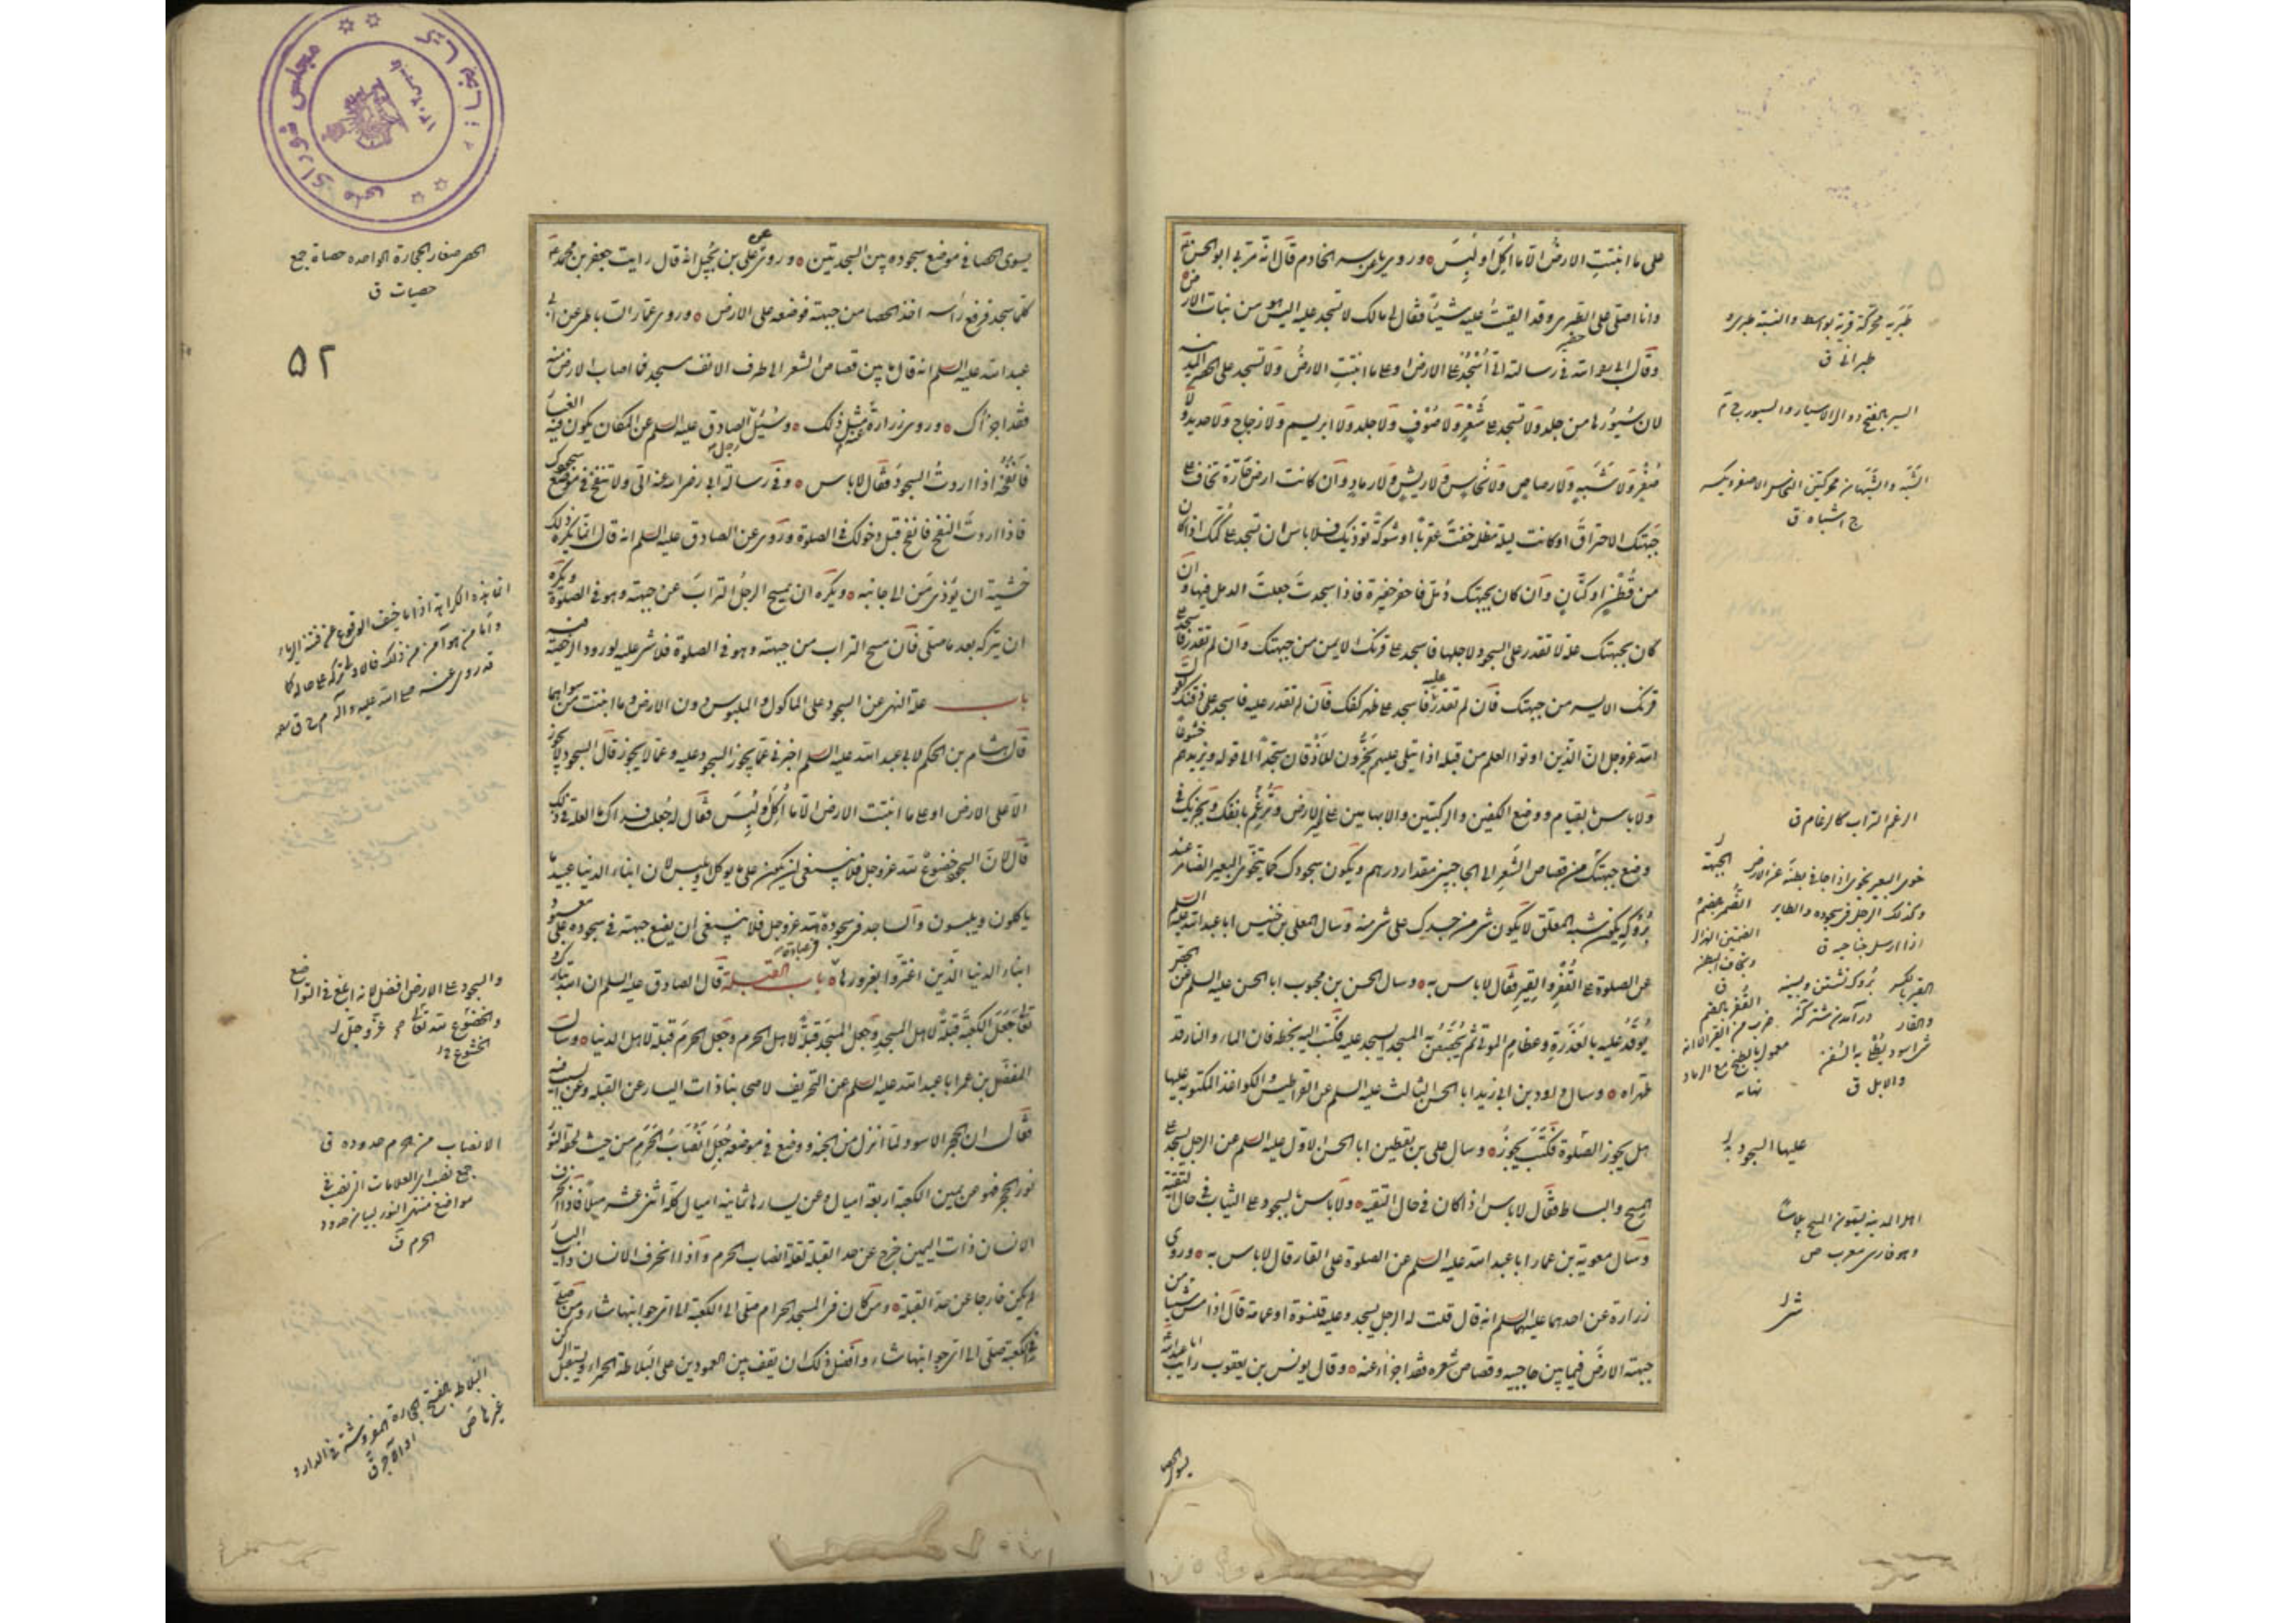 على ما انبتت الارض الا ما اكل او لبس وروى ياسر الخادم قال انه مر بي ابو الحسن ع
وانا اصلى على الطبرى وقد القيت عليه شيئا فقال لى مالك لا تسجد عليه اليس هو من نبات الارض
وقال ابى رحمه الله فى رسالته الى اسجد على الارض او على ما انبتت الارض ولا تسجد على الحصر المدنية
لان سيورها من جلد ولا تسجد على شعر ولا صوف ولا جلد ولا ابريسم ولا زجاج ولا حديد ولا
صفر ولا شبه ولا رصاص ولا نحاس ولا ريش ولا رماد وان كانت ارض حارة تخاف على
جبهتك الاحتراق او كانت ليلة مظلمة خفت عقربا او شوكة تؤذيك فلا باس ان تسجد على كمك اذا كان
من قطن او كتان وان كان بجبهتك دمل فاحفر حفيرة فاذا سجدت جعلت الدمل فيها وان
كان بجبهتك علة لا تقدر على السجود لاجلها فاسجد على قرنك الايمن من جبهتك وان لم تقدر فاسجد على
قرنك الايسر من جبهتك فان لم تقدر عليه فاسجد على ظهر كفك فان لم تقدر عليه فاسجد على ذقنك لقول
الله عز وجل ان الذين اوتوا العلم من قبله اذا يتلى عليهم يخرون للاذقان سجدا الى قوله ويزيدهم خشوعا
ولا باس بالقيام ووضع الكفين والركبتين والابهامين على غير الارض وترغم بانفك ويجزيك فى
وضع جبهتك من قصاص الشعر الى الحاجبين مقدار درهم ويكون سجودك كما يتخوى البعير الضامر عند
بروكه يكون شبه المعلق لا يكون شئ من جسدك على شئ منه وسال المعلى بن خنيس ابا عبد الله عليه السلم
عن الصلوة على القفر والقير فقال لا باس به وسال الحسن بن محبوب ابا الحسن عليه السلم عن الجص
يوقد عليه بالعذرة وعظام الموتى ثم يجصص به المسجد ايسجد عليه فكتب اليه بخطه فان الماء والنار قد
طهراه وسال داود بن ابى زيد ابا الحسن الثالث عليه السلم عن القراطيس والكواغذ المكتوبة عليها
هل يجوز الصلوة فكتب يجوز وسال على بن يقطين ابا الحسن الاول عليه السلم عن الرجل يسجد على
المسح والبساط فقال لا باس اذا كان فى حال التقيه ولا باس بالسجود على الثياب فى حال التقية
وسال معوية بن عمار ابا عبد الله عليه السلم عن الصلوة على القار قال لا باس به وروى
زرارة عن احدهما عليهما السلم انه قال قلت له الرجل يسجد وعليه قلنسوة او عمامة قال اذا مس شئ من
جبهته الارض فيما بين حاجبيه وقصاص شعره فقد اجزا عنه وقال يونس بن يعقوب رايت ابا عبد الله
يسوى الحصا
طبرية محركة قرية بواسط والنسبة طبرى و
طبرانى ق
السير بالفتح
الشبه والشبهان محركتين النحاس الاصفر ويكسر
ج اشباه ق
الرغم التراب كالرغام ق
خوى البعير تخوى اذا جافى بطنه عن الارض
وكذلك الرجل فى سجوده والطاير
اذا ارسل جناحيه ق
الجبهة
والابل ق
نهايه
عليها السجود
اهل المدينة يسمون المسح بلاسا
وهو فارسى معرب ص
مجلس شوراى ملى
٥٢
يسوى الحصا فى موضع سجوده بين السجدتين وروى عن على بن بجيل انه قال رايت جعفر بن محمد ع
كلما سجد فرفع راسه اخذ الحصا من جبهته فوضعه على الارض وروى عمار الساباطى عن ابى
عبد الله عليه السلم انه قال ما بين قصاص الشعر الى طرف الانف مسجد فما اصاب الارض منه
فقد اجزاك وروى زرارة عنه مثل ذلك وسئل الصادق عليه السلم عن المكان يكون فيه الغبار
فانفخه اذا اردت السجود فقال لا باس وفى رسالة ابى رضى الله عنه الى ولا تنفخ فى موضع سجودك
فاذا اردت النفخ فانفخ قبل دخولك فى الصلوة وروى عن الصادق عليه السلم انه قال انما يكره ذلك
خشية ان يؤذى من الى جانبه ويكره ان يمسح الرجل التراب عن جبهته وهو فى الصلوة ويكره
ان يتركه بعد ما صلى فان مسح التراب من جبهته وهو فى الصلوة فلا شئ عليه لورود الرخصة فيه
باب علة النهى عن السجود على الماكول والملبوس دون الارض وما انبتت من سواهما
قال هشام بن الحكم لابى عبد الله عليه السلم اخبرنى عما يجوز السجود عليه وعما لا يجوز قال السجود لا يجوز
الا على الارض او على ما انبتت الارض الا ما اكل او لبس فقال له جعلت فداك ما العلة فى ذلك
قال لان السجود خضوع لله عز وجل فلا ينبغى ان يكون على ما يوكل او يلبس لان ابناء الدنيا عبيد ما
ياكلون ويلبسون والساجد فى سجوده فى عبادة الله عز وجل فلا ينبغى ان يضع جبهته فى سجوده على معبود
ابناء الدنيا الذين اغتروا بغرورها باب القبلة قال الصادق عليه السلم ان الله تبارك و
تعالى جعل الكعبة قبلة لاهل المسجد وجعل المسجد قبلة لاهل الحرم وجعل الحرم قبلة لاهل الدنيا وسال
المفضل بن عمر ابا عبد الله عليه السلم عن التحريف لاصحابنا ذات اليسار عن القبلة وعن السبب فيه
فقال ان الحجر الاسود لما انزل من الجنة ووضع فى موضعه جعل انصاب الحرم من حيث لحقه النور
نور الحجر فهو عن يمين الكعبة اربعة اميال وعن يسارها ثمانية اميال كله اثنى عشر ميلا فاذا انحرف
الانسان ذات اليمين خرج عن حد القبلة لقلة انصاب الحرم واذا انحرف الانسان ذات اليسار
لم يكن خارجا عن حد القبلة ومن كان فى المسجد الحرام صلى الى الكعبة الى اى جوانبها شاء ومن صلى
فى الكعبة صلى الى اى جوانبها شاء وافضل ذلك ان يقف بين العمودين على البلاطة الحمراء ويستقبل الركن
الحصى صغار الحجارة الواحدة حصاة جمع
حصيات ق
والسجود على الارض افضل لانه ابلغ فى التواضع
والخضوع لله عز وجل
الانصاب من الحرم حدوده ق
مواضع منتهى النور لبيان حدود
الحرم
البلاط بالفتح الحجارة المفروشة فى الدار و
غيرها ص